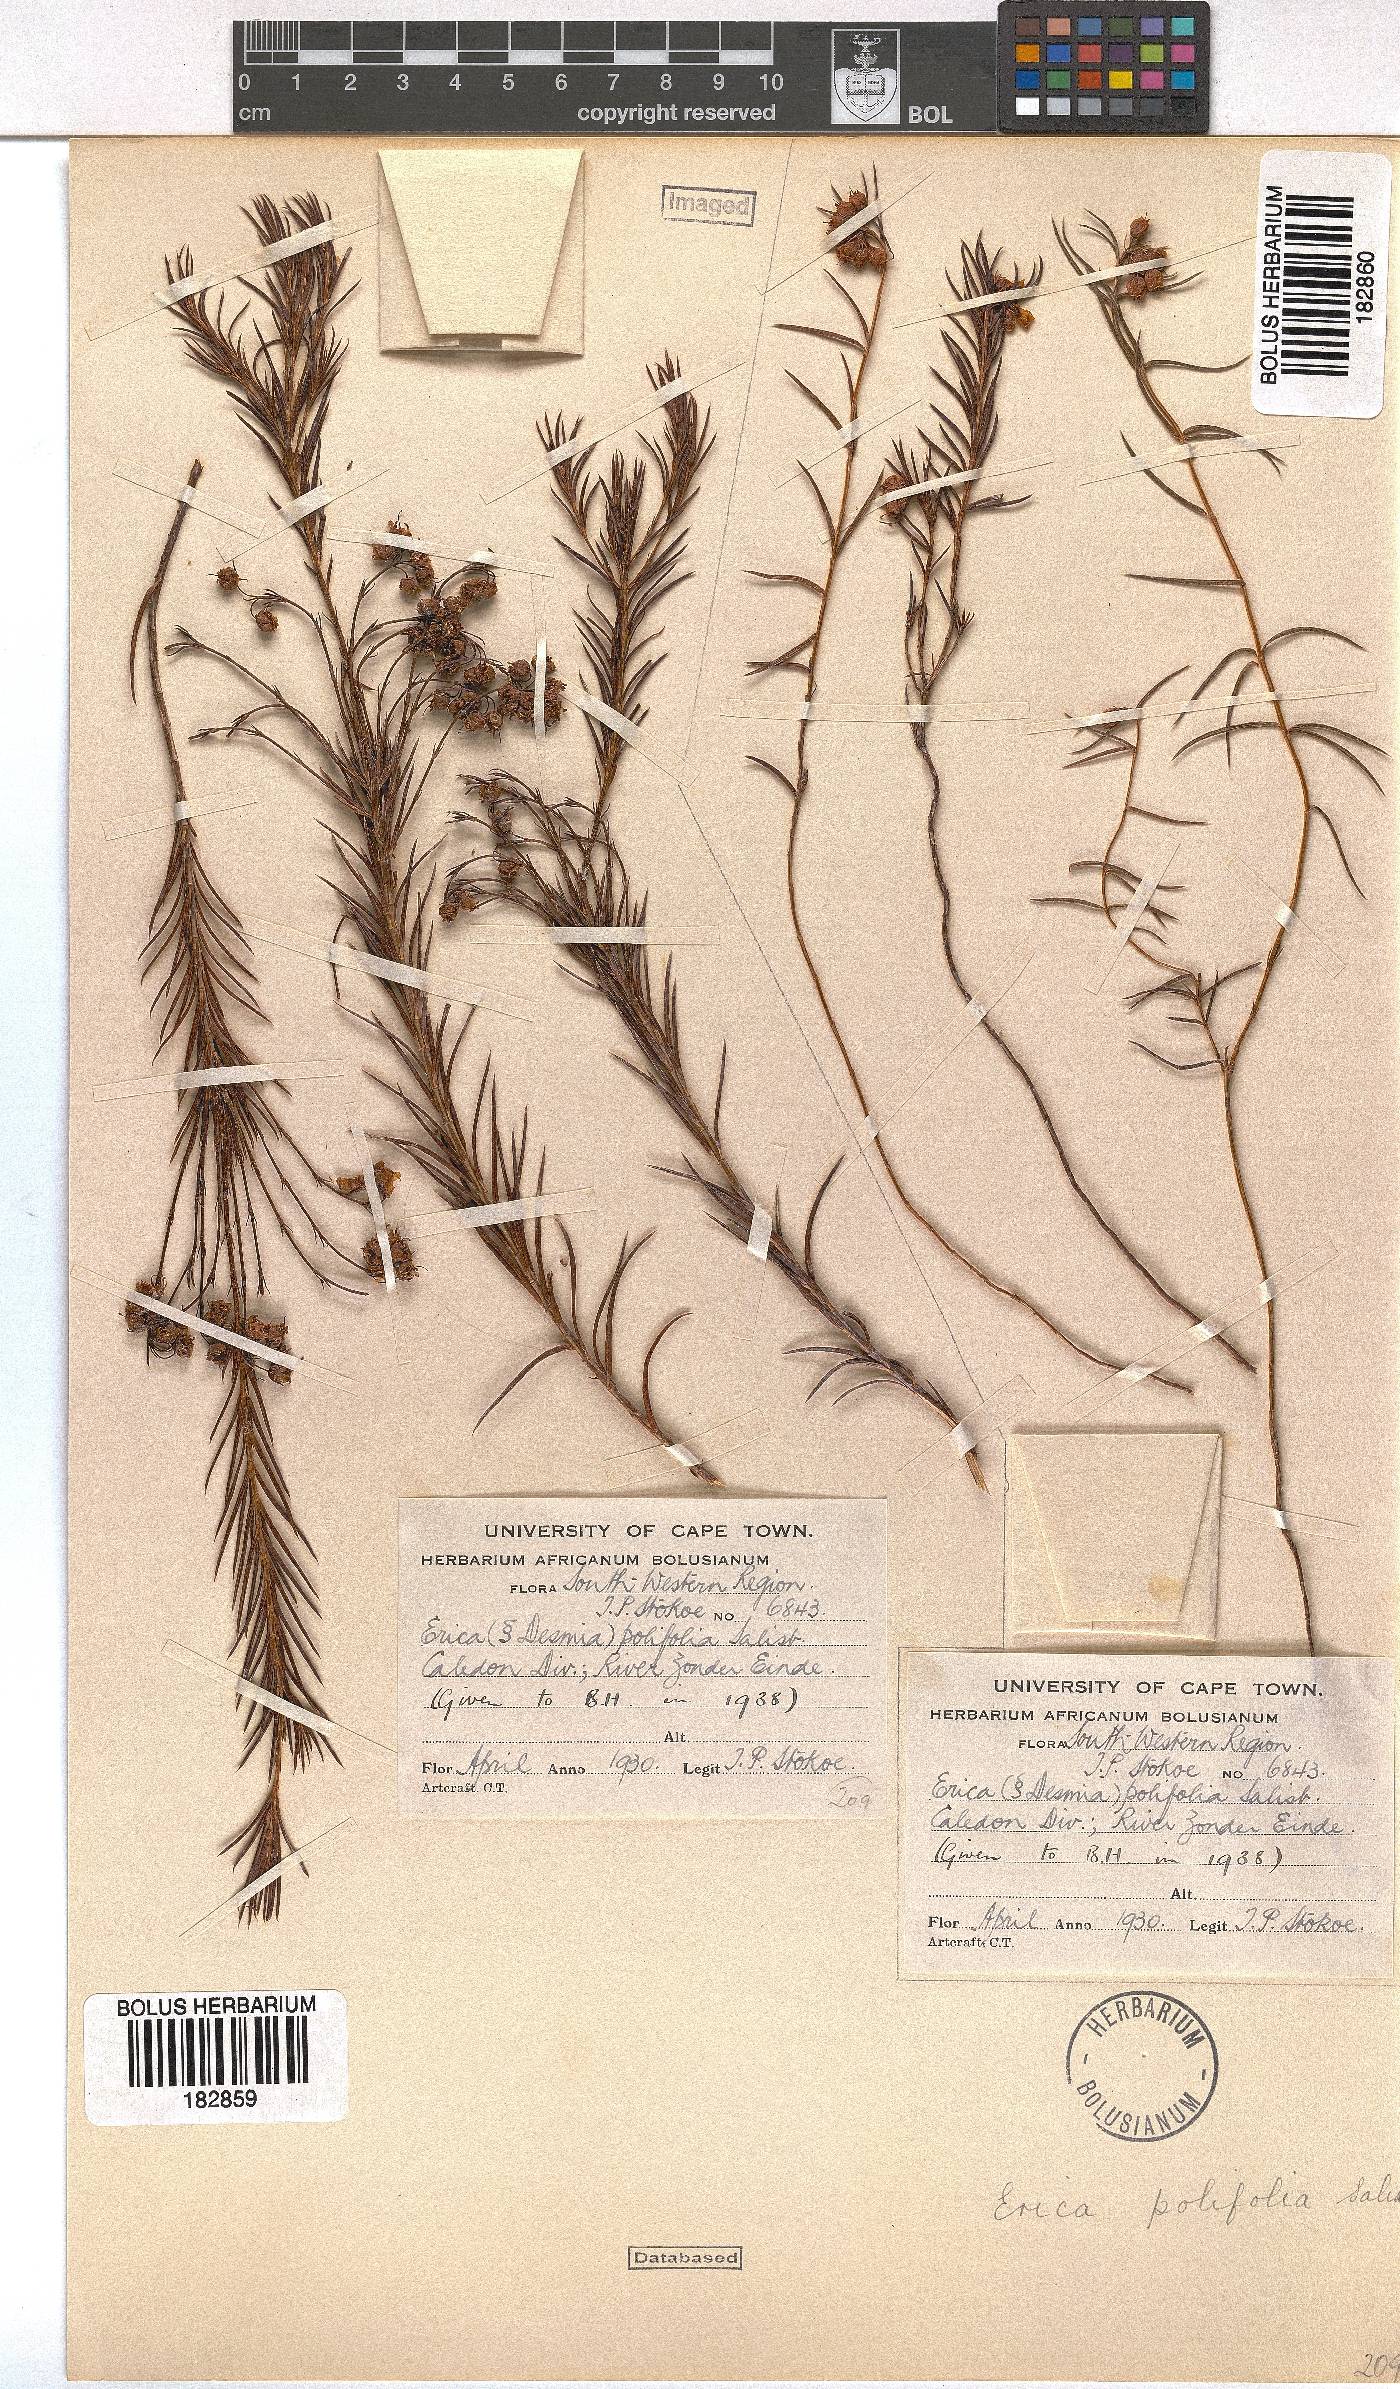 0 1 2 3 4 5 6 7 8 9 10
cm
copyright reserved
BOL
Imaged
BOLUS HERBARIUM
182860
UNIVERSITY OF CAPE TOWN.
HERBARIUM AFRICANUM BOLUSIANUM
FLORA South-Western Region.
T.P. Stokoe NO 6843.
Erica (§ Desmia) polifolia Salisb.
Caledon Div.; River Zonder Einde.
(Given to B.H. in 1938)
Alt.
Flor April Anno 1930. Legit T.P. Stokoe.
Artcraft C.T.
209
UNIVERSITY OF CAPE TOWN.
HERBARIUM AFRICANUM BOLUSIANUM
FLORA South-Western Region.
T.P. Stokoe NO 6843.
Erica (§ Desmia) polifolia Salisb.
Caledon Div.; River Zonder Einde.
(Given to B.H. in 1938)
Alt.
Flor April Anno 1930. Legit T.P. Stokoe.
Artcraft C.T.
BOLUS HERBARIUM
182859
HERBARIUM
BOLUSIANUM
Erica polifolia Salis
Databased
209